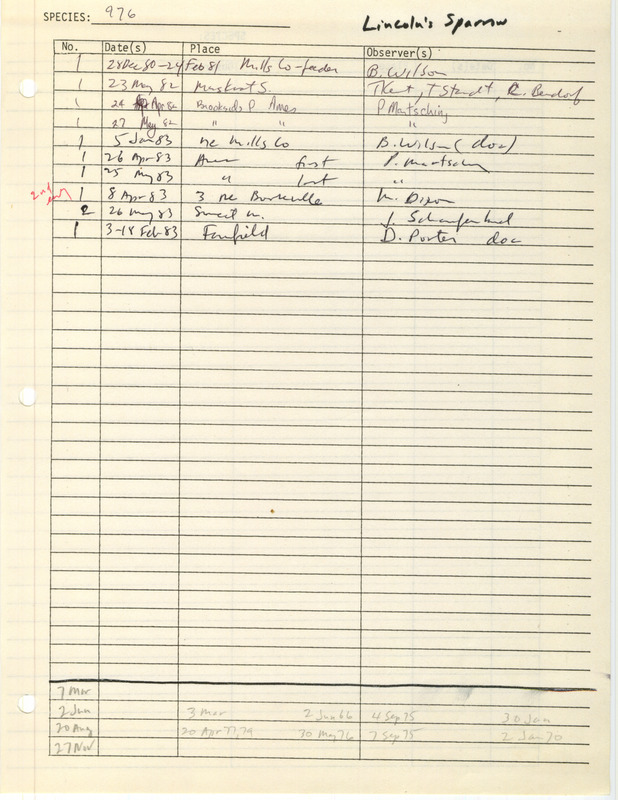 SPECIES: 976 Lincoln's Sparrow
No. Date(s) Place Observer(s)
1 28 Dec 80-24 Feb 81 Mills Co-feeder B. Wilson
1 23 May 82 Muskrat S. TKent, T Staudt, R. Bendorf
1 24 Apr 82 Brookside P. Ames P. Martsching
1 27 May 82 " " "
1 5 Jan 83 nc Mills Co B. Wilson (doc)
1 26 Apr 83 Ames first P. Martsching
1 25 May 83 " last "
2nd 1 8 Apr 83 3 ne
2 26 May 83 Sweet M. J. Schaufenbuel
1 3-18 Feb 83 Fairfield D. Porter doc
7 Mar
2 Jun 3 Mar 2 Jun 66 4 Sep 75 30 Jan
20 Aug 20 Apr 77,79 30 May 76 7 Sep 75 2 Jan 70
27 Nov